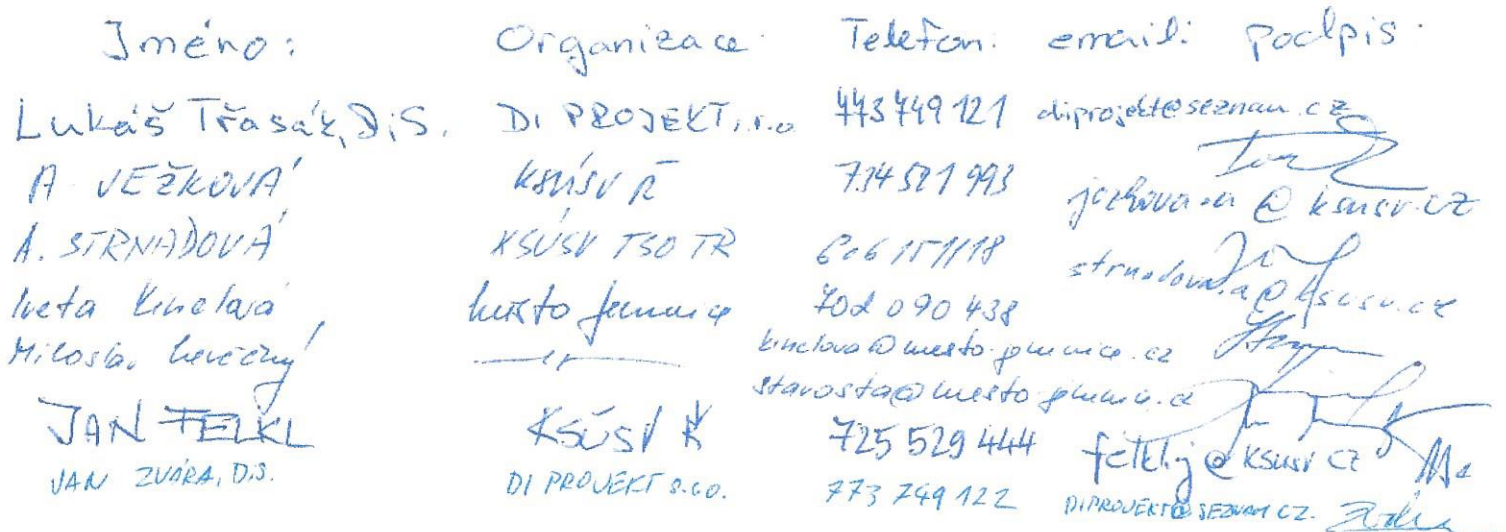 Jméno: Organizace Telefon: email: podpis
Lukáš Třasák, DiS. DI PROJEKT, s.r.o 773 749 121 diprojekt@seznam.cz
A. JEŽKOVÁ KSÚSV 734 521 993 jezkova.a@ksusv.cz
A. STRNADOVÁ KSÚSV TSO TR 606 151118 strnadova.a@ksusv.cz
Iveta Kinclová Město Jemnice 702 090 438
Miloslav kinclova@mesto-jemnice.cz
starosta@mesto-jemnice.cz
JAN FELKL KSÚSV 725 529 444 felkl.j@ksusv.cz
JAN ZVÁRA, DiS. DI PROJEKT s.r.o. 773 749 122 DIPROJEKT@SEZNAM.CZ.